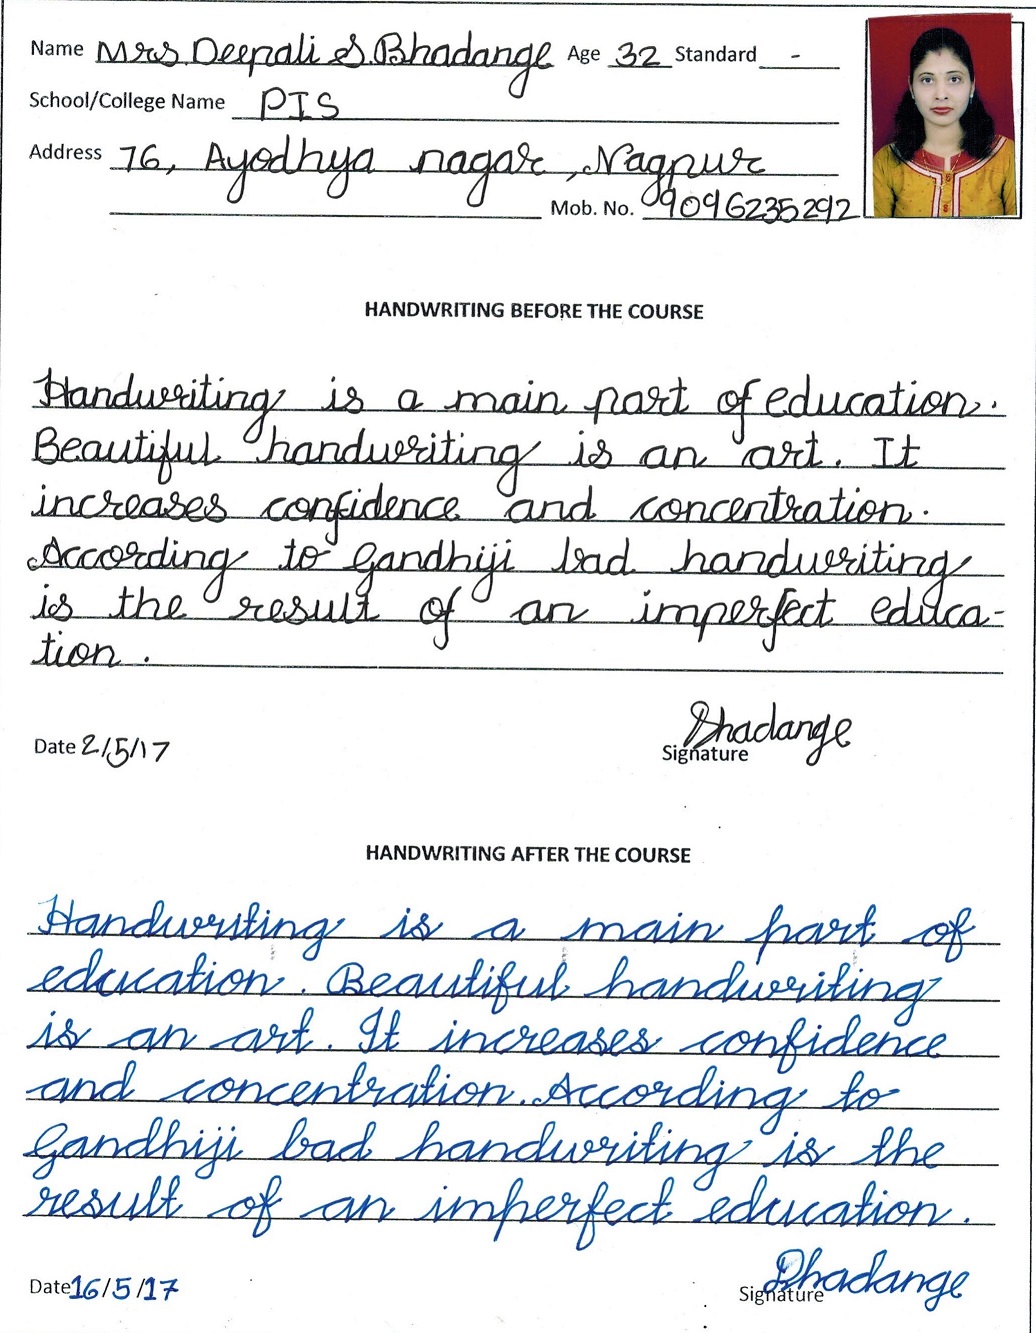 Name Mrs. Deepali S. Bhadange Age 32 Standard -
School/College Name PIS
Address 76, Ayodhya nagar, Nagpur
Mob. No. 9096235292
HANDWRITING BEFORE THE COURSE
Handwriting is a main part of education.
Beautiful handwriting is an art. It
increases confidence and concentration.
According to Gandhiji bad handwriting
is the result of an imperfect educa-
tion.
Bhadange
Date 2/5/17 Signature
HANDWRITING AFTER THE COURSE
Handwriting is a main part of
education. Beautiful handwriting
is an art. It increases confidence
and concentration. According to
Gandhiji bad handwriting is the
result of an imperfect education.
Bhadange
Date 16/5/17 Signature